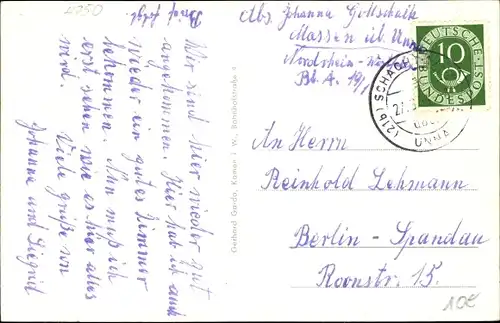 4250
Brief folgt
Wir sind hier wieder gut
angekommen. Hier hab ich auch
wieder ein gutes Zimmer
bekommen. Nun muß ich
erst sehen wie es hier alles
wird.
Viele Grüße von
Johanna und Siegrid
Gerhard Garda, Kamen i. W., Bahnhofstraße
Abs. Johanna Gottschalk
Massen üb. Unna
Nordrhein-
Bl. A. 19,
DEUTSCHE
BUNDESPOST
10
(21b)
UNNA
An Herrn
Reinhold Lehmann
Berlin-Spandau
Roonstr. 15.
10€